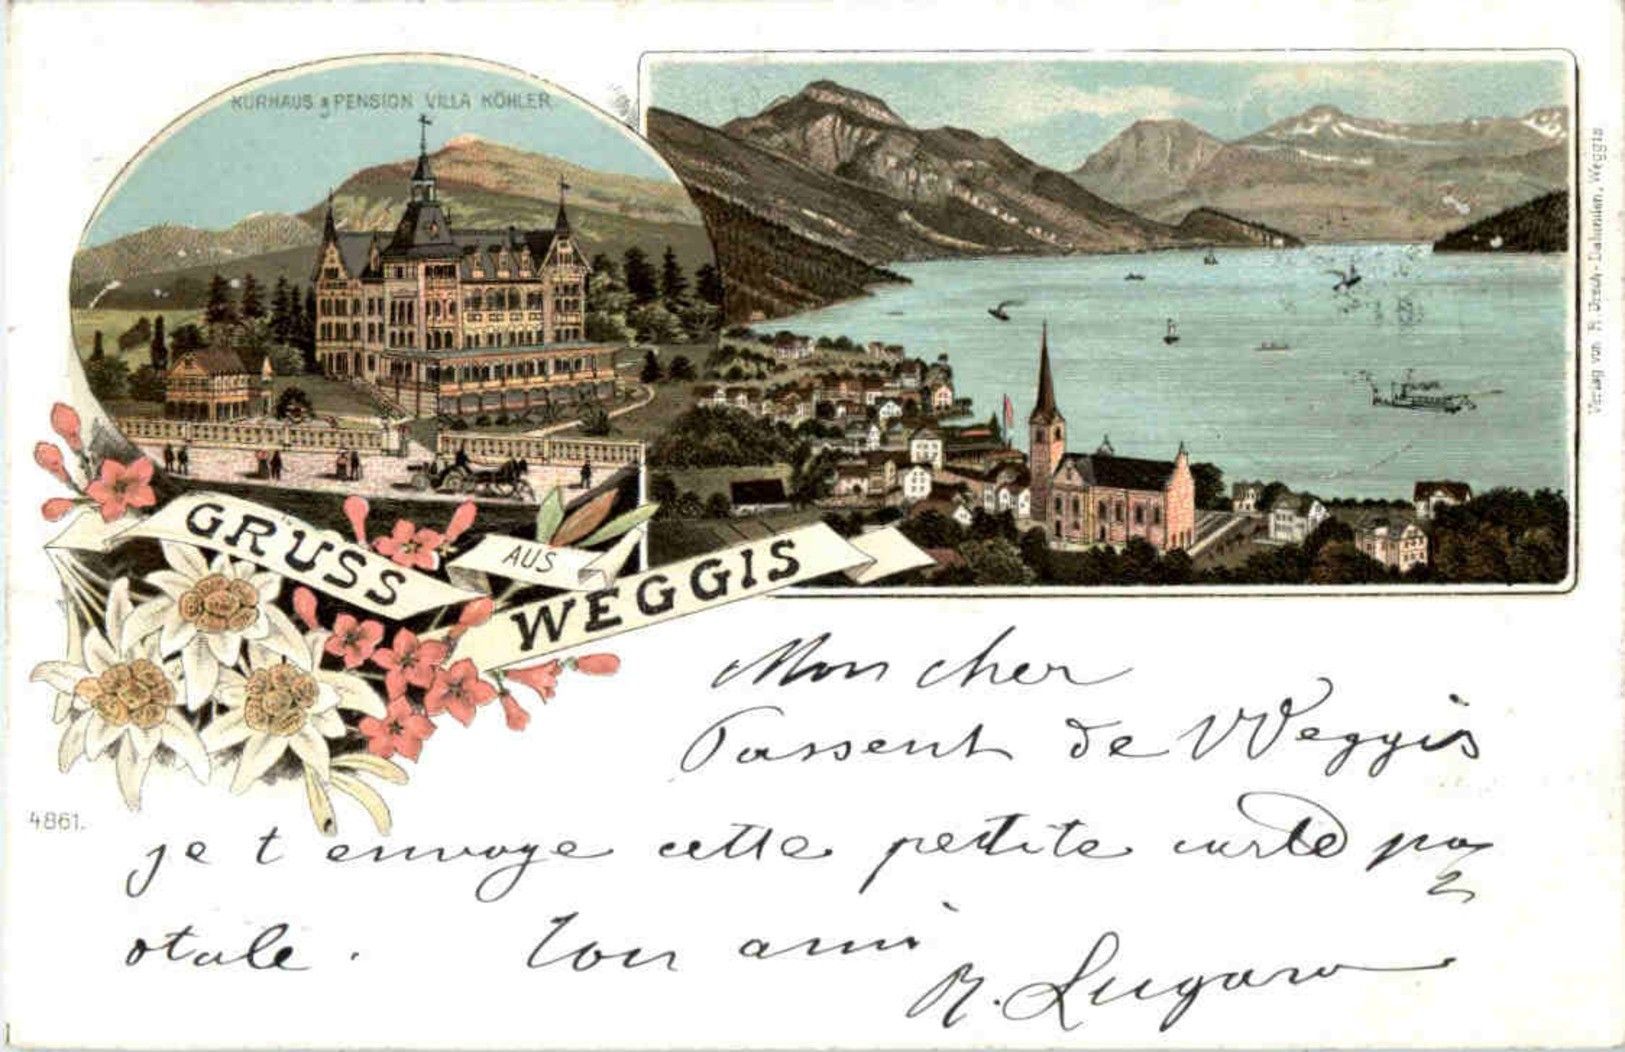 KURHAUS & PENSION VILLA KÖHLER
GRUSS
AUS
WEGGIS
Mon cher
Passent de Weggis
je t envoye cette petite carte po
stale. Ton ami
4861.
Verlag von Weggis